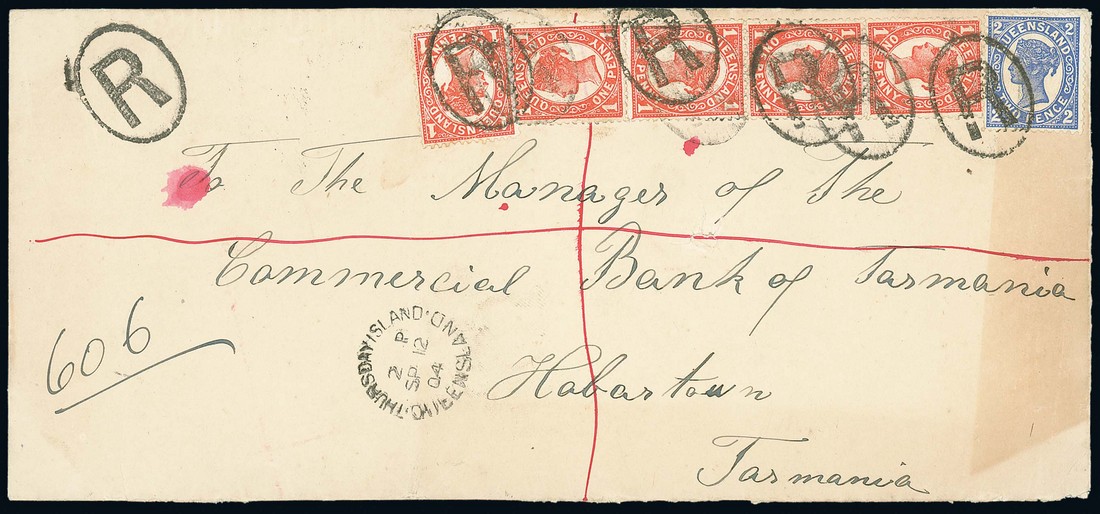 R
1 QUEENSLAND 1 ONE PENNY
1 QUEENSLAND 1 ONE PENNY
1 QUEENSLAND 1 ONE PENNY
1 QUEENSLAND 1 ONE PENNY
1 QUEENSLAND 1 ONE PENNY
2 QUEENSLAND 2 TWO PENCE
R
R
R
R
R
To The Manager of The
Commercial Bank of Tasmania
606
THURSDAY ISLAND. QUEENSLAND
2 P
SP 12
04
Hobartown
Tasmania